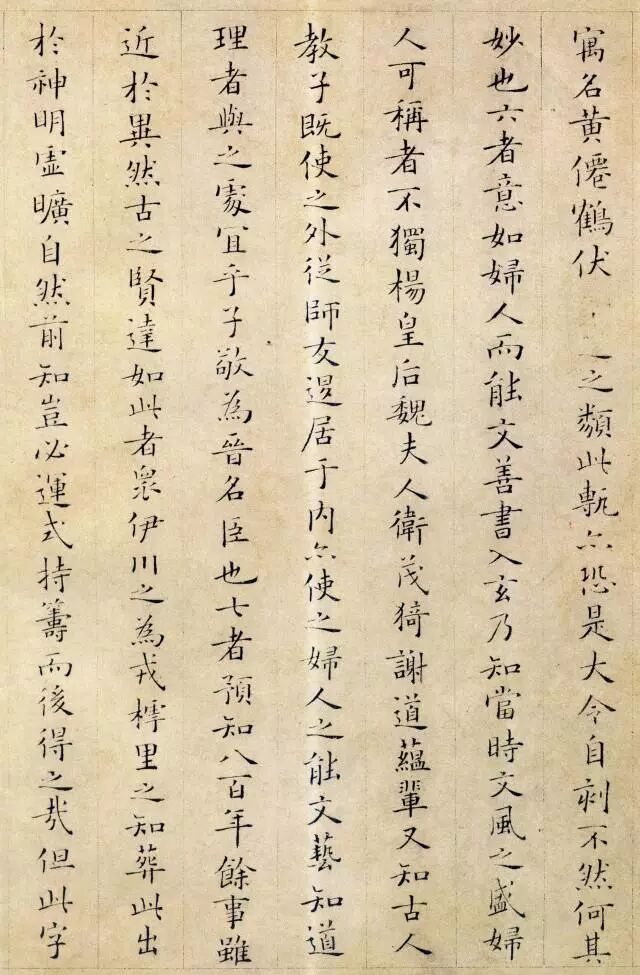 寓名黃僊鶴伏之之類此甎亦恐是大令自刻不然何其
妙也六者意如婦人而能文善書入玄乃知當時文風之盛婦
人可稱者不獨楊皇后魏夫人衛茂猗謝道蘊輩又知古人
教子既使之外從師友退居于内亦使之婦人之能文藝知道
理者與之處宜乎子敬為晉名臣也七者預知八百年餘事雖
近於異然古之賢達如此者衆伊川之為戎樗里之知葬此出
於神明虛曠自然前知豈必運式持籌而後得之哉但此字